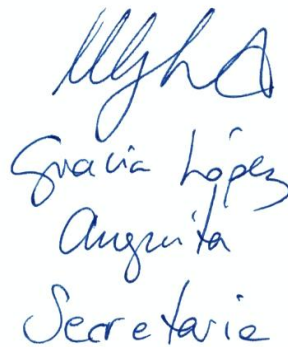 Gracia López
Anguita
Secretaria